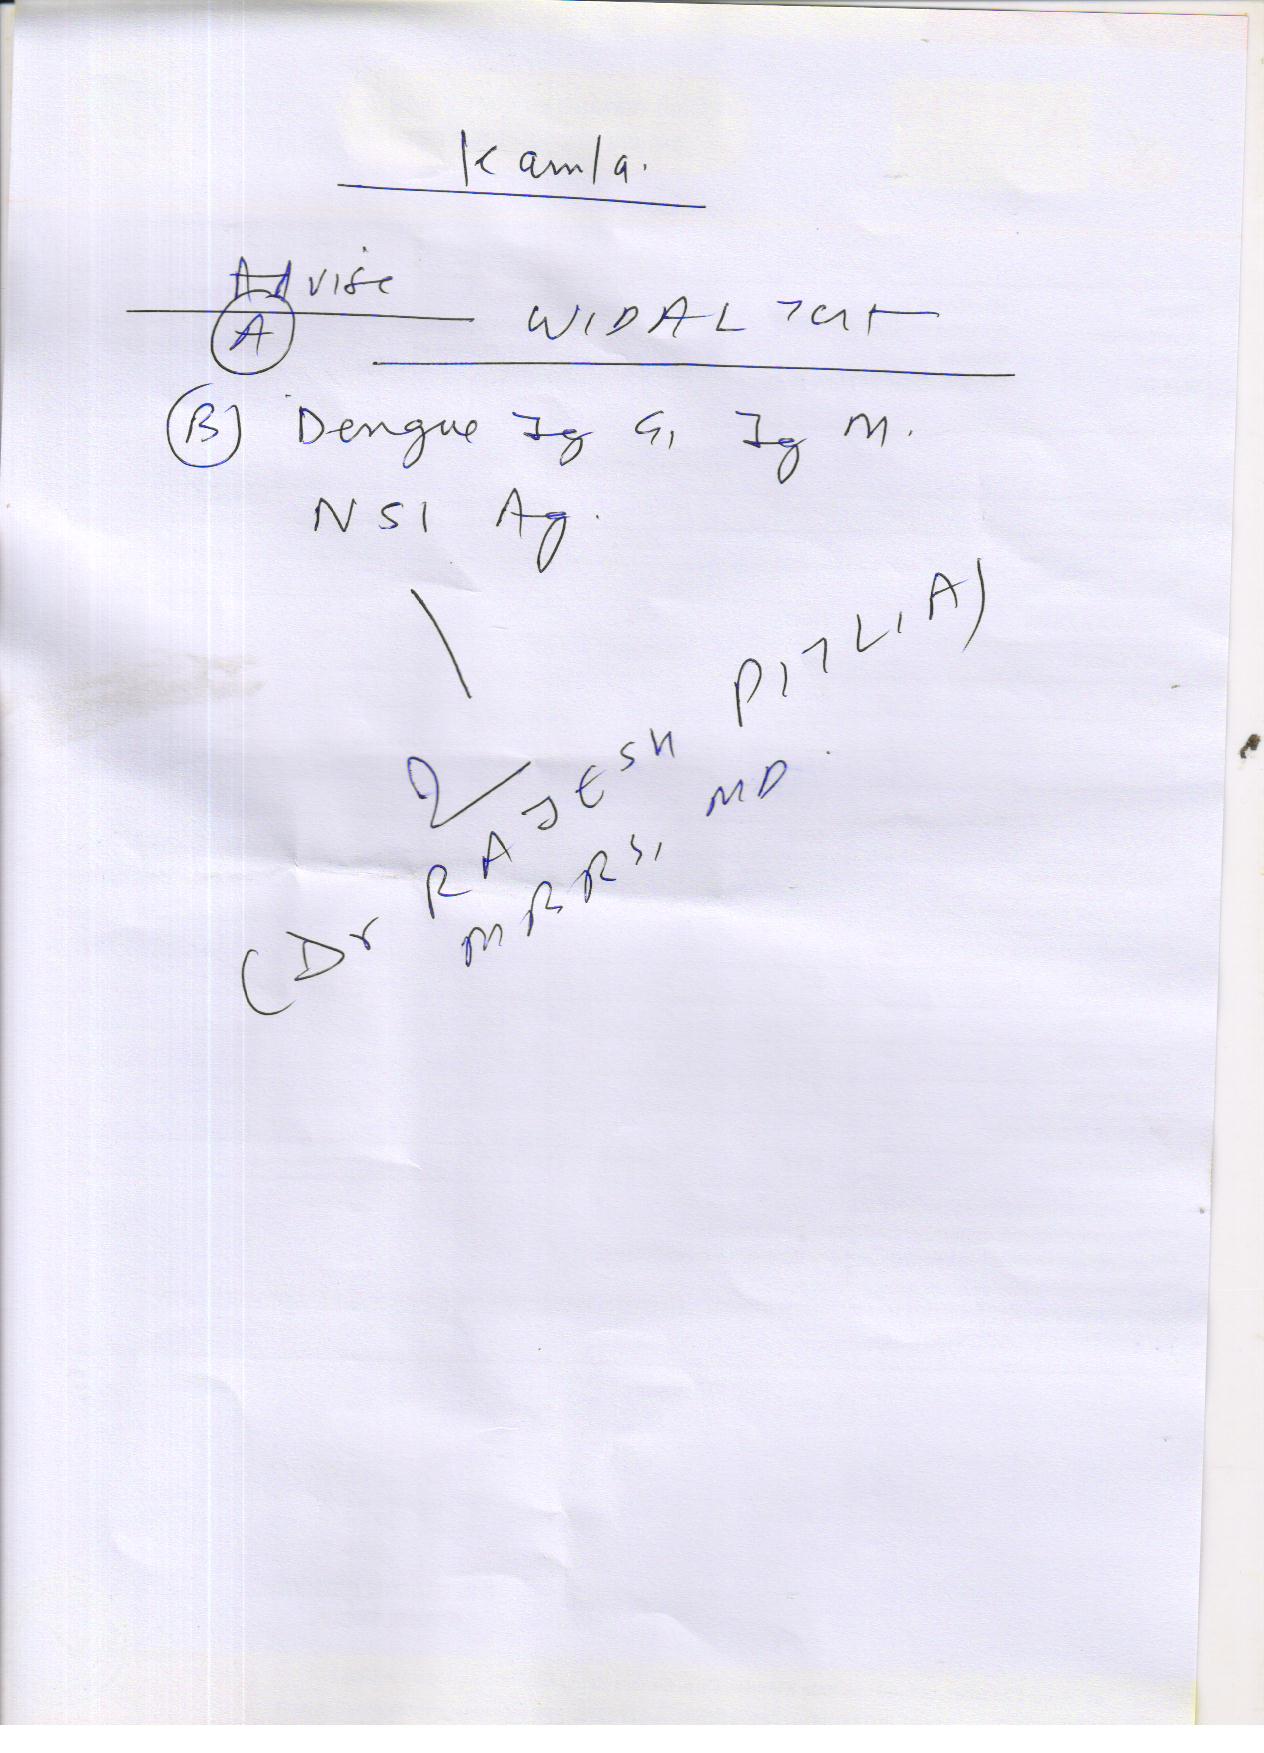 Kamla.
Advise
(A) WIDAL Test
(B) Dengue Ig G, Ig M.
NS1 Ag.
(Dr RAJESH PITLIA)
MBBS, MD.